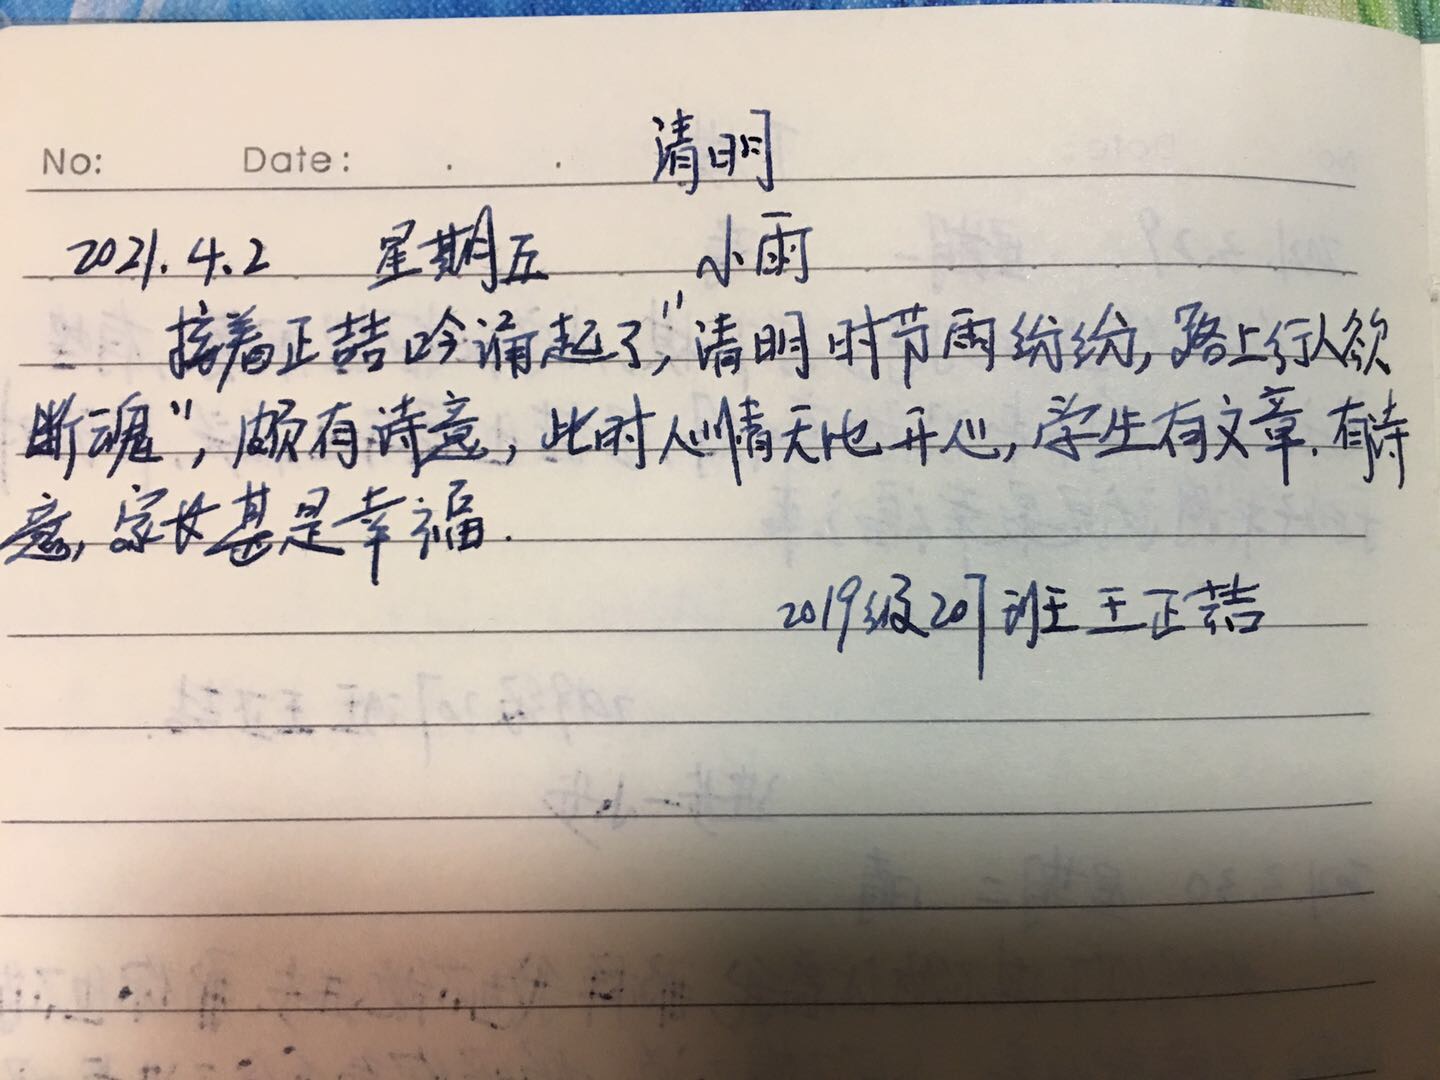 清明
No: Date: . .
2021.4.2 星期五 小雨
接着正喆吟诵起了"清明时节雨纷纷,路上行人欲
断魂",颇有诗意,此时人心情无比开心,学生有文章.有诗
意,家长甚是幸福.
2019级207班王正喆